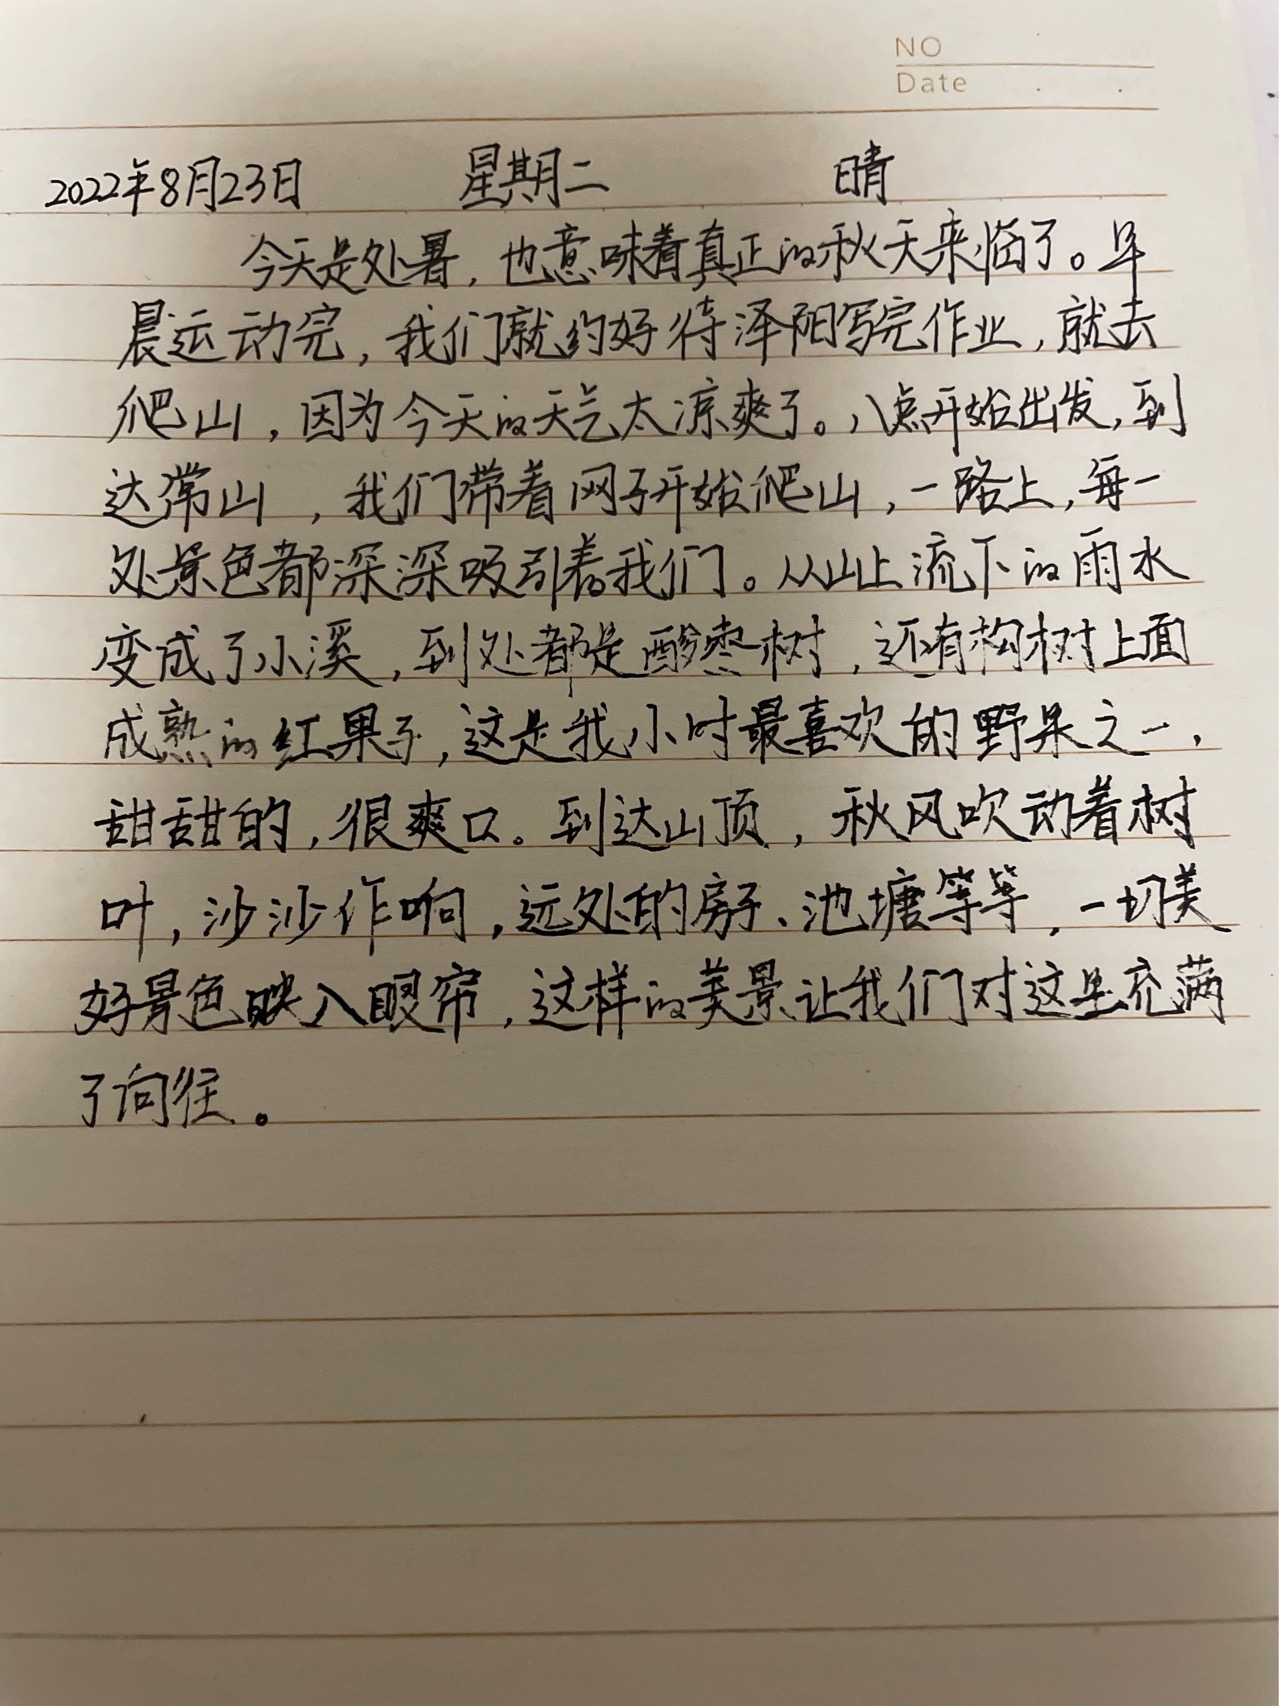 NO
Date
2022年8月23日 星期二 晴
今天是处暑，也意味着真正的秋天来临了。早
晨运动完，我们就约好待泽阳写完作业，就去
爬山，因为今天的天气太凉爽了。八点开始出发，到
达常山，我们带着网子开始爬山，一路上，每一
处景色都深深吸引着我们。从山上流下的雨水
变成了小溪，到处都是酸枣树，还有构树上面
成熟的红果子，这是我小时最喜欢的野果之一，
甜甜的，很爽口。到达山顶，秋风吹动着树
叶，沙沙作响，远处的房子、池塘等等，一切美
好景色映入眼帘，这样的美景让我们对这里充满
了向往。